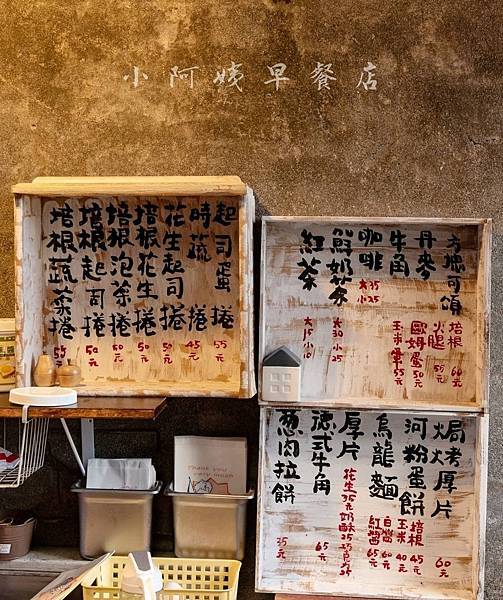 小阿姨早餐店
起司蛋捲 55元
時蔬捲 45元
花生起司捲 50元
培根花生捲 50元
培根泡菜捲 50元
培根起司捲 50元
培根蔬菜捲 55元
方塊可頌 培根 60元
火腿 55元
丹麥 歐姆蛋 50元
牛角 玉米蛋 55元
咖啡 大35 小25
鮮奶茶 大30 小25
紅茶 大15 小10
焗烤厚片 60元
河粉蛋餅 培根 45元
玉米 40元
烏龍麵 白醬 60元
紅醬 65元
厚片 花生35元 奶酥
德式牛角 65元
蔥肉拉餅 35元
Thank you